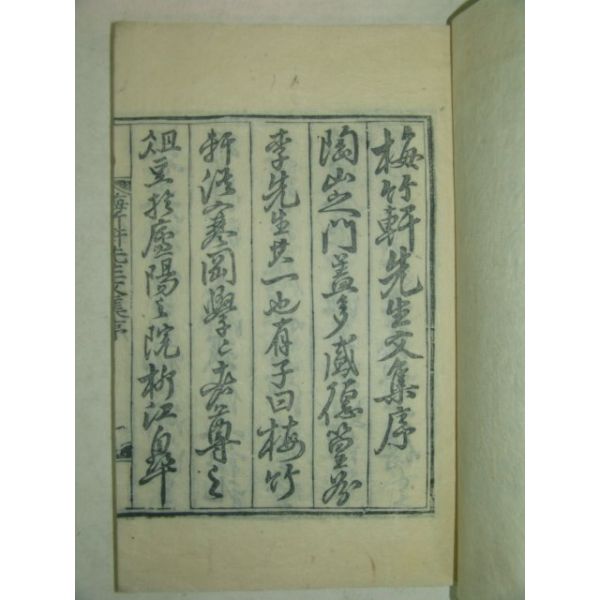 梅竹軒先生文集序
陶山之門盖多盛德篁谷
李先生其一也有子曰梅竹
軒從寒岡學之老尊之
俎豆於廬陽之院柳江皐
梅竹軒先生文集序